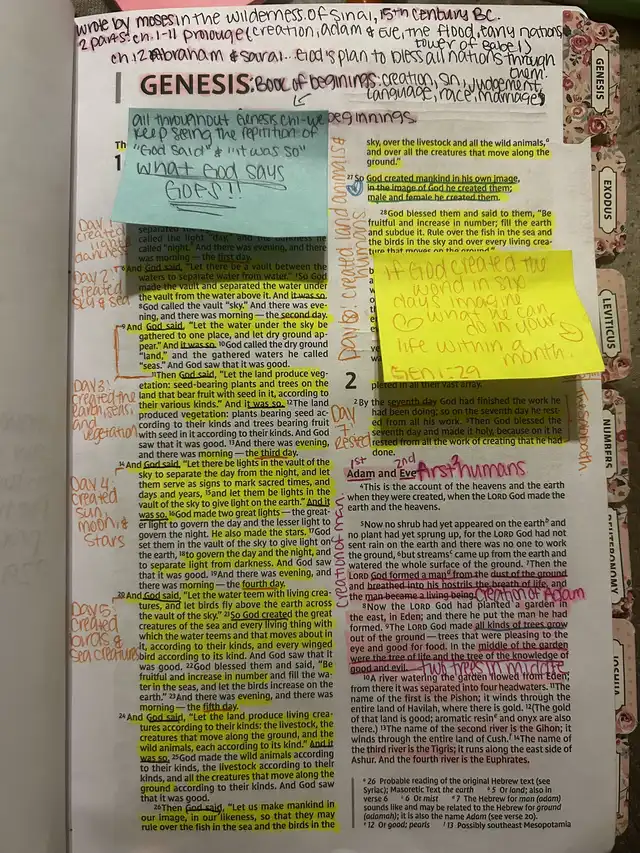 wrote by moses in the wilderness of Sinai, 15th century BC.
2 parts: ch. 1-11 prolouge (creation, adam & eve, the flood, tany nations
tower of Babel)
ch. 12 Abraham & sarai.. God's plan to bless all nations through
them.
GENESIS: Book of beginings: creation, sin, judgement,
language, race, marriage
beginnings.
all throughout Genesis ch1 - we
keep seeing the repitition of
"God said" & "it was so"
what God says
GOES!!
Th
1
separated
called the light "day," and the darkness he
called "night." And there was evening, and there
was morning — the first day.
6 And God said, "Let there be a vault between the
waters to separate water from water." 7 So God
made the vault and separated the water under
the vault from the water above it. And it was so.
8 God called the vault "sky." And there was eve-
ning, and there was morning — the second day.
9 And God said, "Let the water under the sky be
gathered to one place, and let dry ground ap-
pear." And it was so. 10 God called the dry ground
"land," and the gathered waters he called
"seas." And God saw that it was good.
11 Then God said, "Let the land produce vege-
tation: seed-bearing plants and trees on the
land that bear fruit with seed in it, according to
their various kinds." And it was so. 12 The land
produced vegetation: plants bearing seed ac-
cording to their kinds and trees bearing fruit
with seed in it according to their kinds. And God
saw that it was good. 13 And there was evening,
and there was morning — the third day.
14 And God said, "Let there be lights in the vault of the
sky to separate the day from the night, and let
them serve as signs to mark sacred times, and
days and years, 15 and let them be lights in the
vault of the sky to give light on the earth." And it
was so. 16 God made two great lights — the great-
er light to govern the day and the lesser light to
govern the night. He also made the stars. 17 God
set them in the vault of the sky to give light on
the earth, 18 to govern the day and the night, and
to separate light from darkness. And God saw
that it was good. 19 And there was evening, and
there was morning — the fourth day.
20 And God said, "Let the water teem with living crea-
tures, and let birds fly above the earth
across the vault of the sky." 21 So God created the
great creatures of the sea and every living thing with
which the water teems and that moves about in
it, according to their kinds, and every winged
bird according to its kind. And God saw that it
was good. 22 God blessed them and said, "Be
fruitful and increase in number and fill the wa-
ter in the seas, and let the birds increase on the
earth." 23 And there was evening, and there was
morning — the fifth day.
24 And God said, "Let the land produce living crea-
tures according to their kinds: the livestock, the
creatures that move along the ground, and the
wild animals, each according to its kind." And it
was so. 25 God made the wild animals according
to their kinds, the livestock according to their
kinds, and all the creatures that move along the
ground according to their kinds. And God saw
that it was good.
26 Then God said, "Let us make mankind in
our image, in our likeness, so that they may
rule over the fish in the sea and the birds in the
Day 1:
created
Day 2:
created
sky & sea
Day 3:
created the
earth, seas,
and
vegetation
Day 4:
created
sun,
moon, &
stars
Day 5:
created
birds &
sea creatures
sky, over the livestock and all the wild animals, a
and over all the creatures that move along the
ground."
27 So God created mankind in his own image,
in the image of God he created them;
male and female he created them.
28 God blessed them and said to them, "Be
fruitful and increase in number; fill the earth
and subdue it. Rule over the fish in the sea and
the birds in the sky and over every living crea-
ture that moves on the ground."
Day 6: created land animals &
humans
if God created the
world in six
days imagine
what he can
do in your
life within a
month.
GEN 1:29
2
pleted in all their vast array.
2 By the seventh day God had finished the work he
had been doing; so on the seventh day he rest-
ed from all his work. 3 Then God blessed the
seventh day and made it holy, because on it he
rested from all the work of creating that he had
done.
Day 7:
rested
1st 2nd
Adam and Eve First humans
4 This is the account of the heavens and the earth
when they were created, when the LORD God made
the earth and the heavens.
5 Now no shrub had yet appeared on the earth b and
no plant had yet sprung up, for the LORD God had
not sent rain on the earth and there was no one to work
the ground, 6 but streams c came up from the earth and
watered the whole surface of the ground. 7 Then the
LORD God formed a man d from the dust of the ground
and breathed into his nostrils the breath of life, and
the man became a living being. Creation of Adam
creation of man.
8 Now the LORD God had planted a garden in
the east, in Eden; and there he put the man he had
formed. 9 The LORD God made all kinds of trees grow
out of the ground — trees that were pleasing to the
eye and good for food. In the middle of the garden
were the tree of life and the tree of the knowledge of
good and evil. two trees in middle
10 A river watering the garden flowed from Eden;
from there it was separated into four headwaters. 11 The
name of the first is the Pishon; it winds through the
entire land of Havilah, where there is gold. 12 (The gold
of that land is good; aromatic resin e and onyx are also
there.) 13 The name of the second river is the Gihon; it
winds through the entire land of Cush. f 14 The name of
the third river is the Tigris; it runs along the east side of
Ashur. And the fourth river is the Euphrates.
a 26 Probable reading of the original Hebrew text (see
Syriac); Masoretic Text the earth b 5 Or land; also in
verse 6 c 6 Or mist d 7 The Hebrew for man (adam)
sounds like and may be related to the Hebrew for ground
(adamah); it is also the name Adam (see verse 20).
e 12 Or good; pearls f 13 Possibly southeast Mesopotamia
GENESIS
EXODUS
LEVITICUS
NUMBERS
DEUTERONOMY
JOSHUA